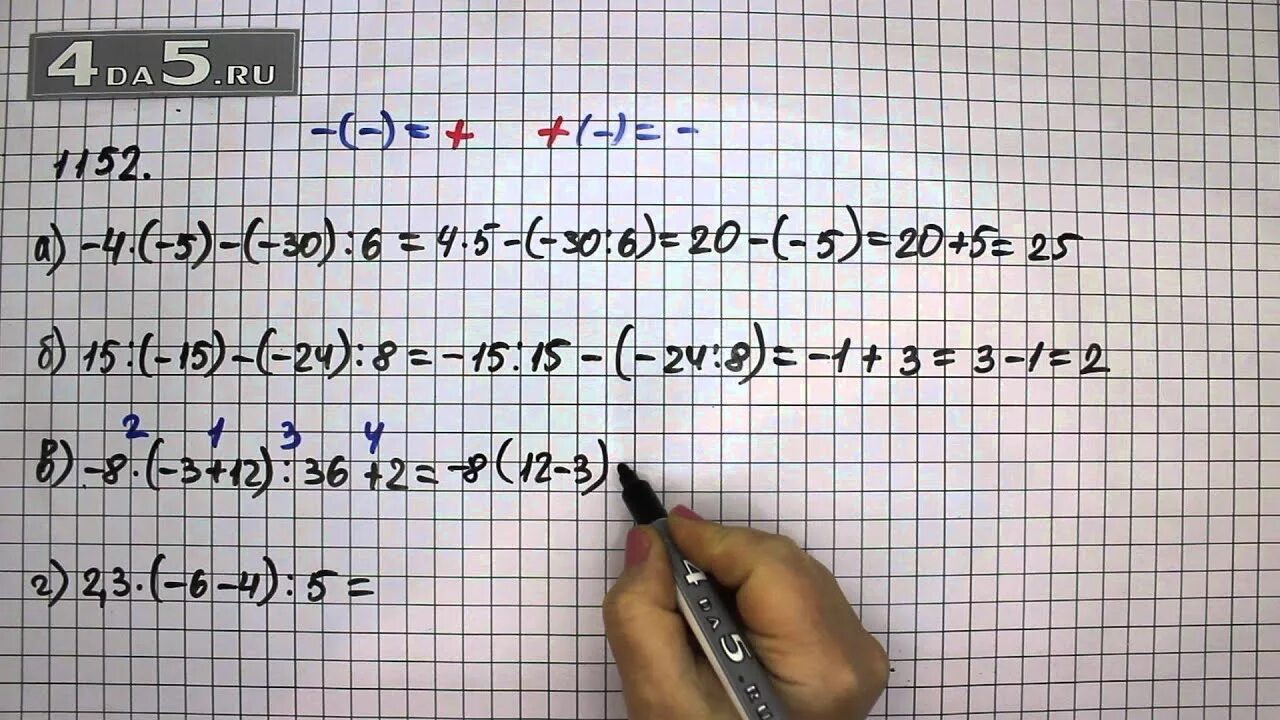 4DA5.RU
-(-) = +   +(-) = -
1152.
а) -4·(-5)-(-30):6 = 4·5-(-30:6)=20-(-5)=20+5=25
б) 15:(-15)-(-24):8 = -15:15-(-24:8)=-1+3=3-1=2
2 1 3 4
в) -8·(-3+12):36+2=-8(12-3)
г) 2,3·(-6-4):5=
4DA5.RU